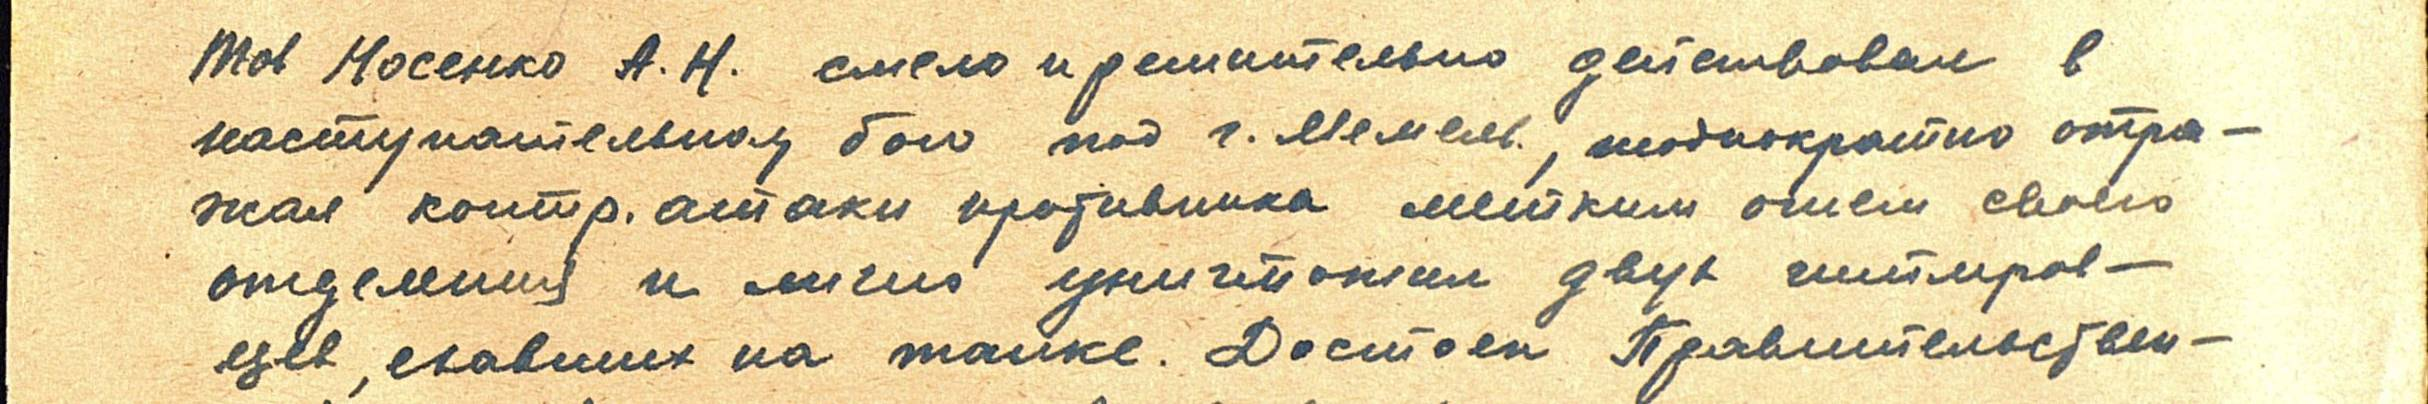 Тов Носенко А.Н. смело и решительно действовал в
наступательном бою под г. Мемель, неоднократно отра-
жал контр.атаки противника метким огнем своего
отделения и лично уничтожил двух гитлеров-
цев, ехавших на танке. Достоен Правительствен-